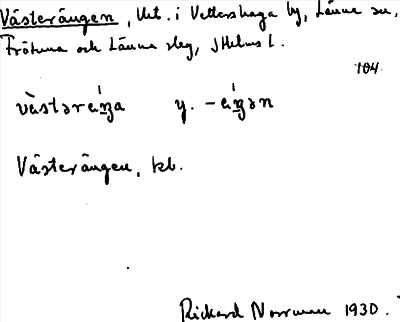 Västerängen, Utt. i Vettershaga by, Länna sn,
Frötuna och Länna slg, Sthlms l.
104.
västəräŋa y. -äŋən
Västerängen, kb.
Rickard Norrman 1930.